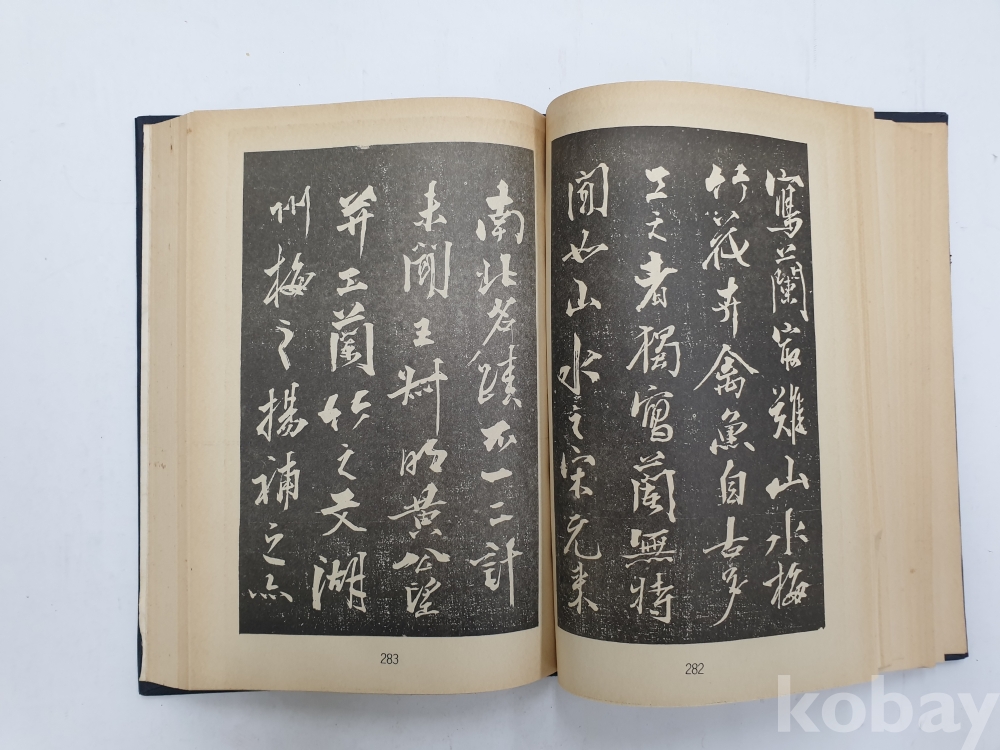 寫蘭最難山水梅
竹花卉禽魚自古多
工之者獨寫蘭無特
聞如山水之宋元來
南北名蹟不一二計
未聞王叔明黃公望
幷工蘭竹之文湖
州梅之揚補之亦
282
283
kobay